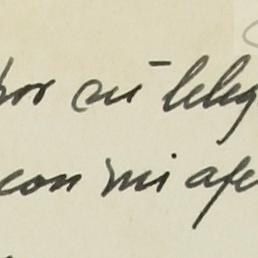 por su teleg
con mi afe